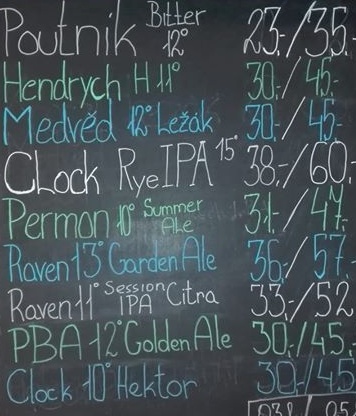 Poutník Bitter 12° 23,-/35,-
Hendrych H 11° 30,-/45,-
Medvěd 12° Ležák 30,-/45,-
CLock RyeIPA 15° 38,-/60,-
Permon 10° Summer Ale 31,-/47,-
Raven 13° Garden Ale 36,-/57,-
Raven 11° Session IPA Citra 33,-/52
PBA 12° Golden Ale 30,-/45,-
Clock 10° Hektor 30,-/45